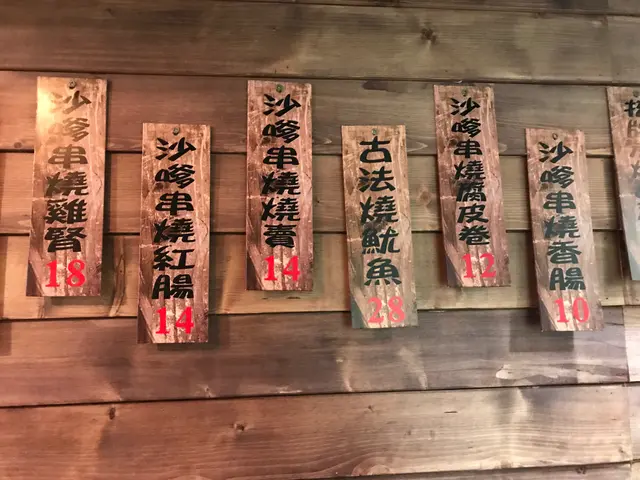 沙嗲串燒雞腎
18
沙嗲串燒紅腸
14
沙嗲串燒燒賣
14
古法燒魷魚
28
沙嗲串燒腐皮卷
12
沙嗲串燒香腸
10